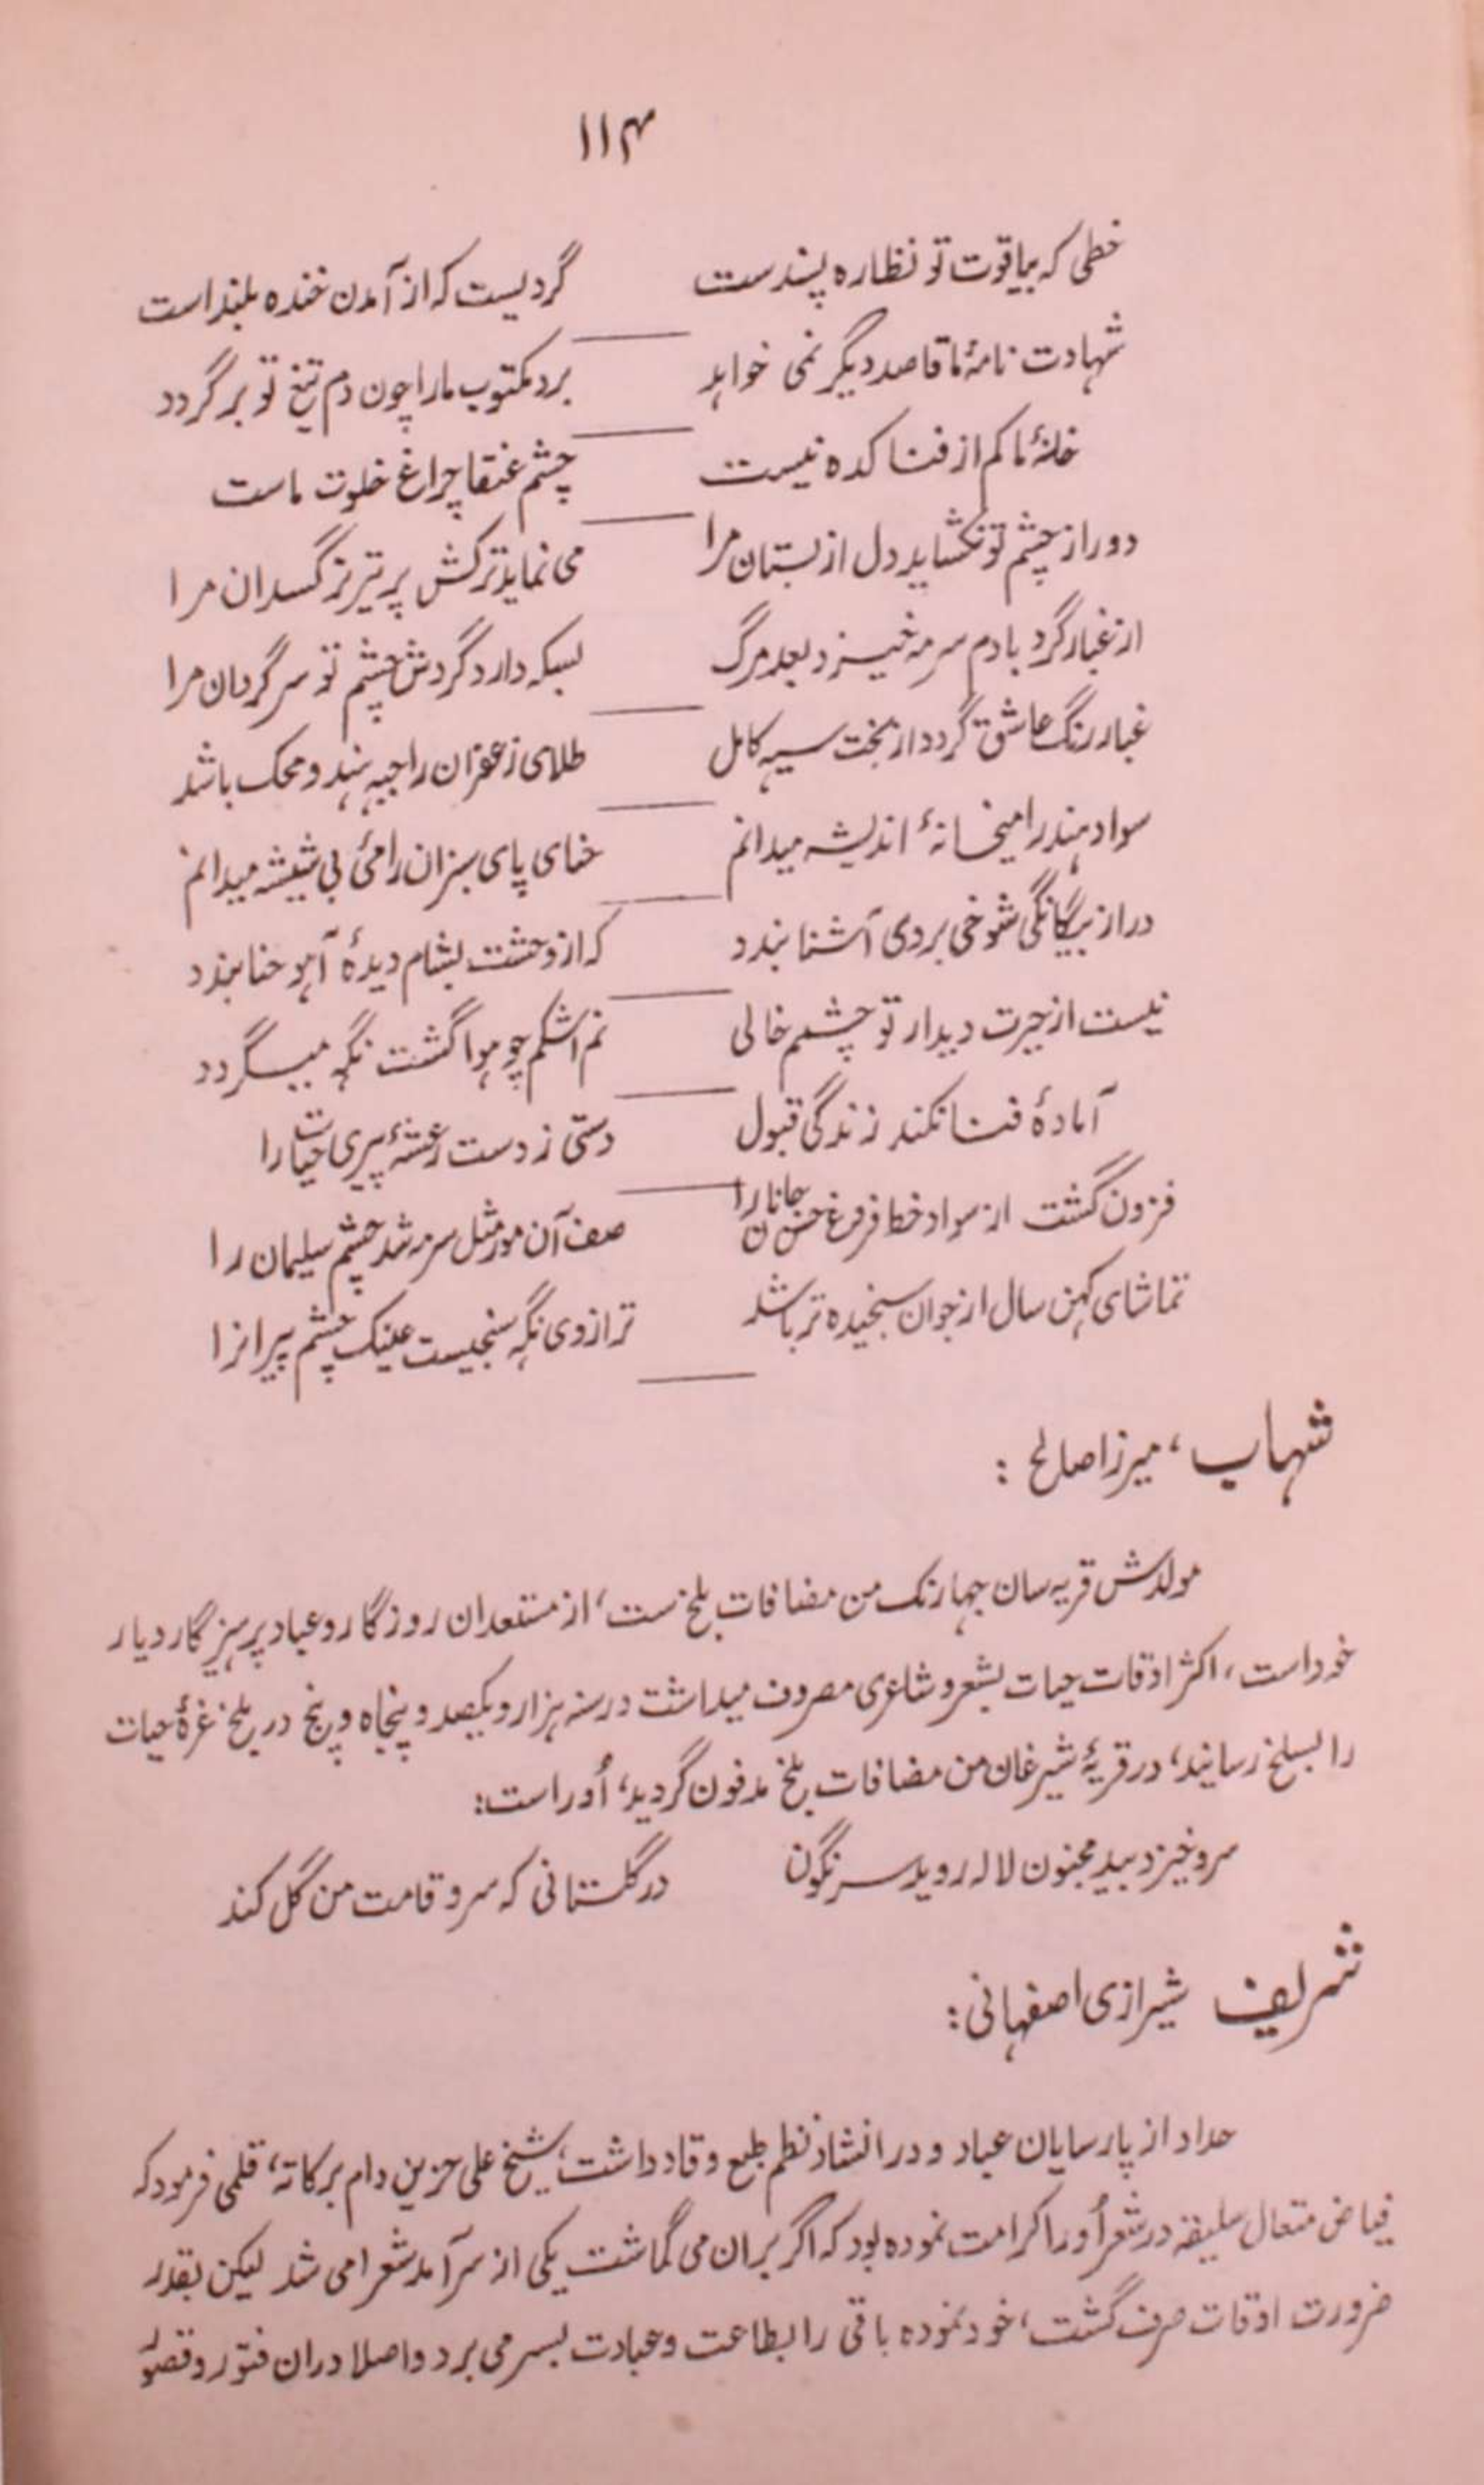 ۱۱۴
خطی که بیاقوت تو نظاره پسندست گردیست که از آمدن خنده بلند است
شهادت نامۂ ما قاصد دیگر نمی خواهد برد مکتوب ما را چون دم تیغ تو بر گردد
خانۂ ما کم از فنا کده نیست چشم عنقا چراغ خلوت ماست
دور از چشم تو نکشاید دل از بستان مرا می نماید ترکش پر تیر نرگسدان مرا
از غبار گرد بادم سرمه خیزد بعد مرگ بسکه دارد گردش چشم تو سرگردان مرا
غبار رنگ عاشق گردد از بخت سیه کامل طلای زعفران را جبهه هندو محک باشد
سواد هند را میخانۂ اندیشه میدانم حنای پای سبزان را مئ بی شیشه میدانم
در از بیگانگی شوخی بروی آشنا بندد که از وحشت بشام دیدۂ آهو حنا بندد
نیست از حیرت دیدار تو چشمم خالی نم اشکم چو هوا گشت نگه میگردد
آمادۂ فنا نکند زندگی قبول دستی ز دست رعشۂ پیری حیات را
فزون گشت از سواد خط فروغ حسن جانان را صف آن مور مثل سرمه شد چشم سلیمان را
تماشای کهن سال از جوان سنجیده تر باشد ترازوی نگه سنجیست عینک چشم پیرانرا
شهاب، میرزا صالح :
مولدش قریه سان چهارنک من مضافات بلخ ست، از مستعدان روزگار و عباد پرهیزگار دیار
خود است، اکثر اوقات حیات بشعر و شاعری مصروف میداشت در سنه هزار و یکصد و پنجاه و پنج در بلخ غرۂ حیات
را بسلخ رسانید، در قریۂ شیرغان من مضافات بلخ مدفون گردید، اُو راست:
سرو خیزد بید مجنون لاله روید سرنگون در گلستانی که سرو قامت من گل کند
شریف شیرازی اصفهانی:
حداد از پارسایان عباد و در انشاد نظم طبع وقاد داشت، شیخ علی حزین دام برکاته، قلمی فرموده که
فیاض متعال سلیقه در شعر اُو را کرامت نموده بود که اگر بران می گماشت یکی از سرآمد شعرا می شد لیکن بقدر
ضرورت اوقات صرف گشت، خود نموده باقی را بطاعت و عبادت بسر می برد و اصلا دران فتور و قصور